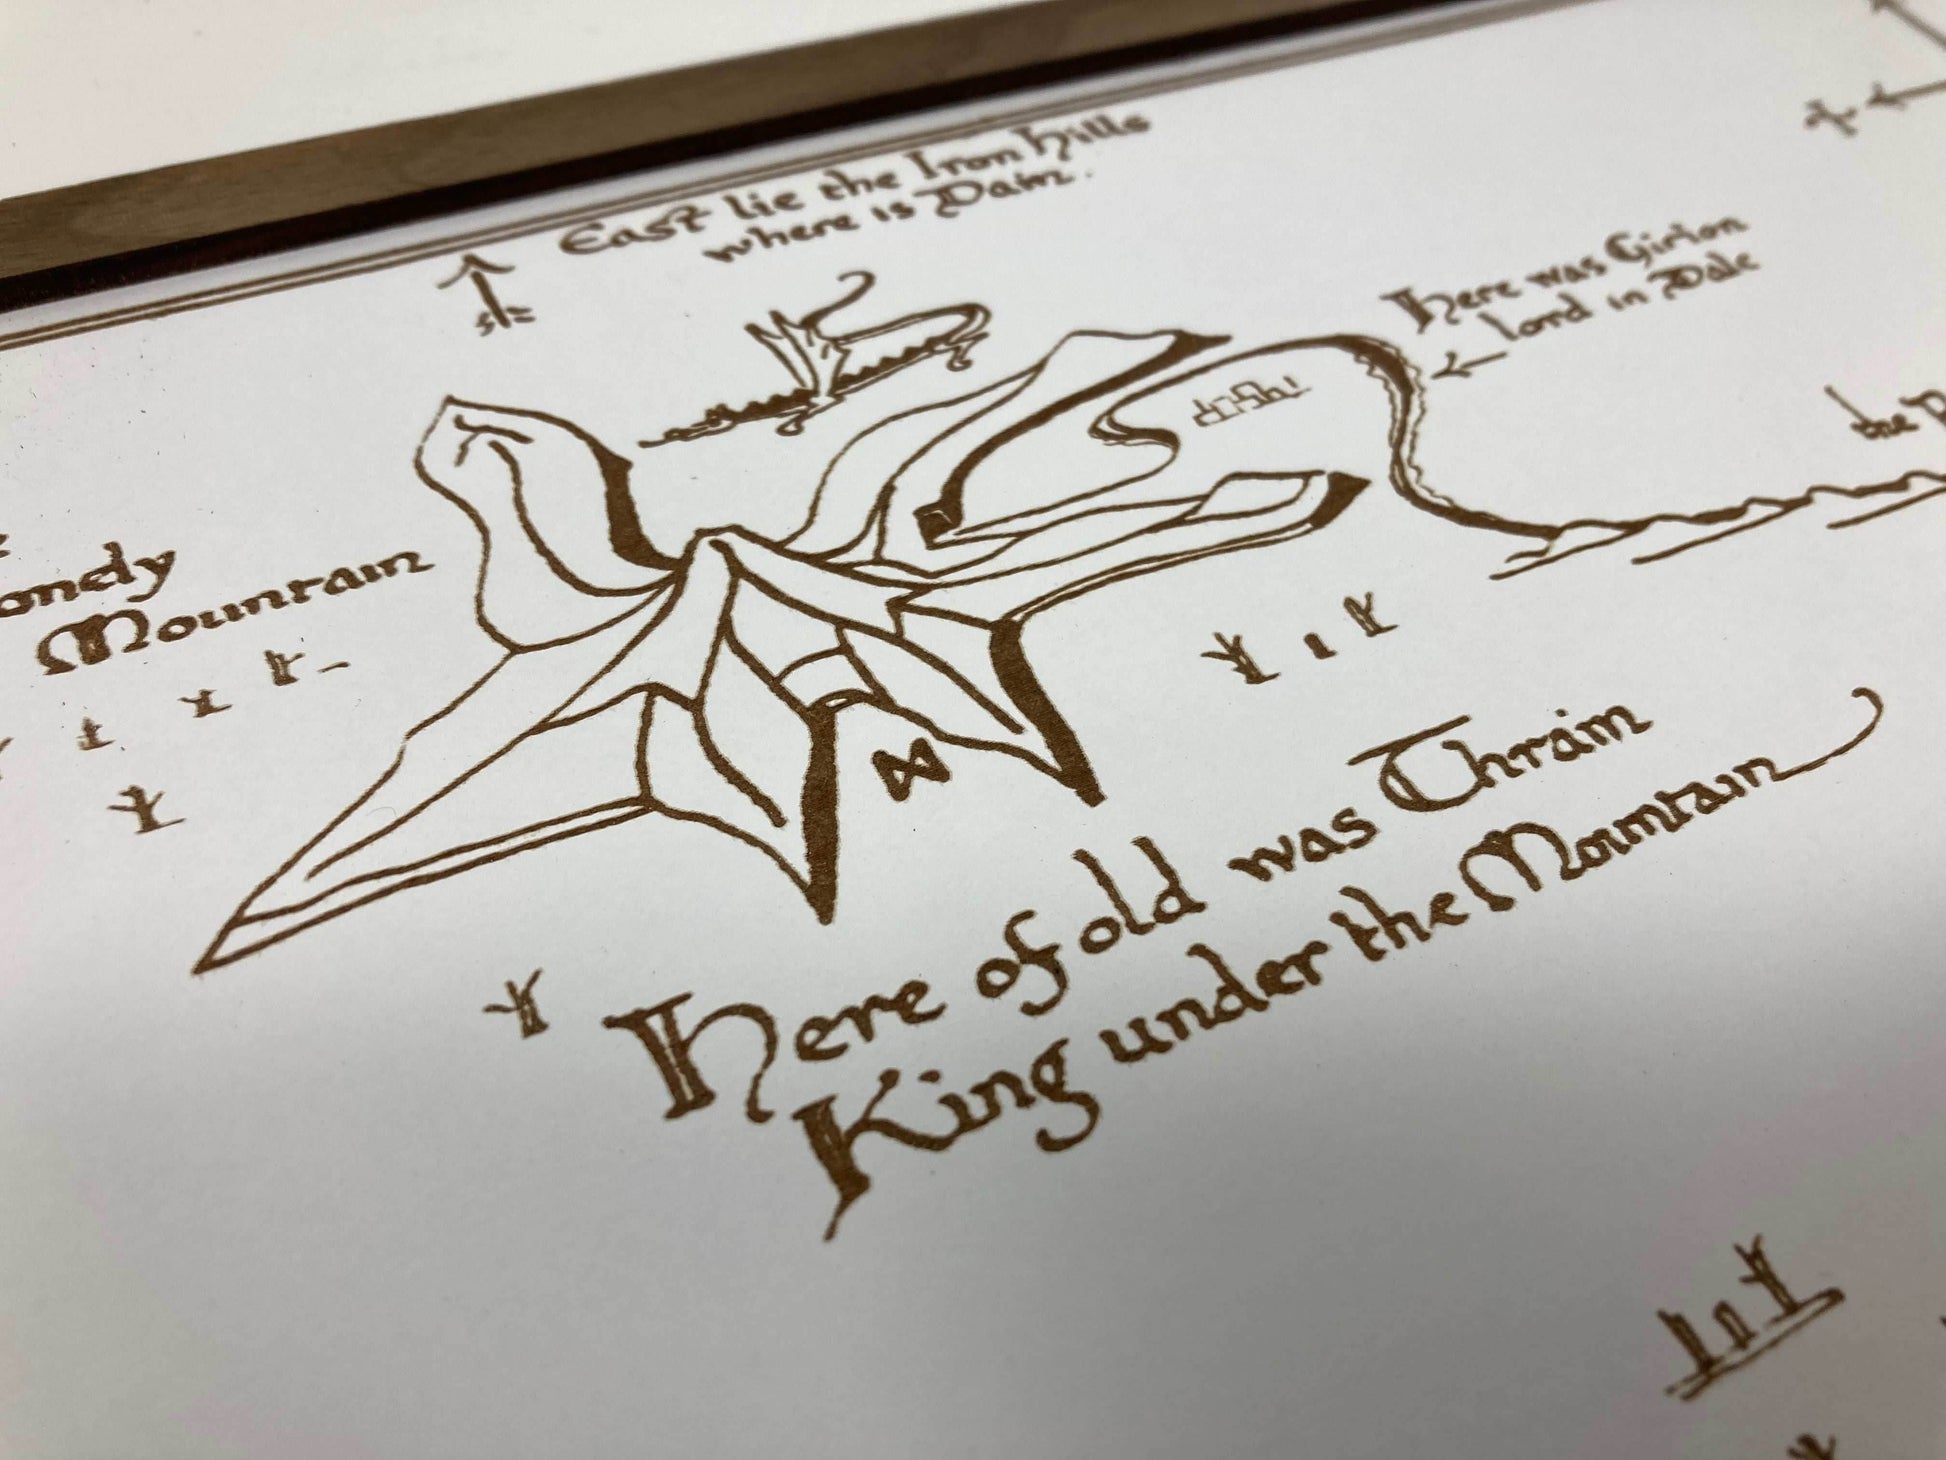 East lie the Iron Hills
where is Dain.
Here was Girion
lord in Dale
the
Mountain
ᛞ
Here of old was Thrain
King under the Mountain